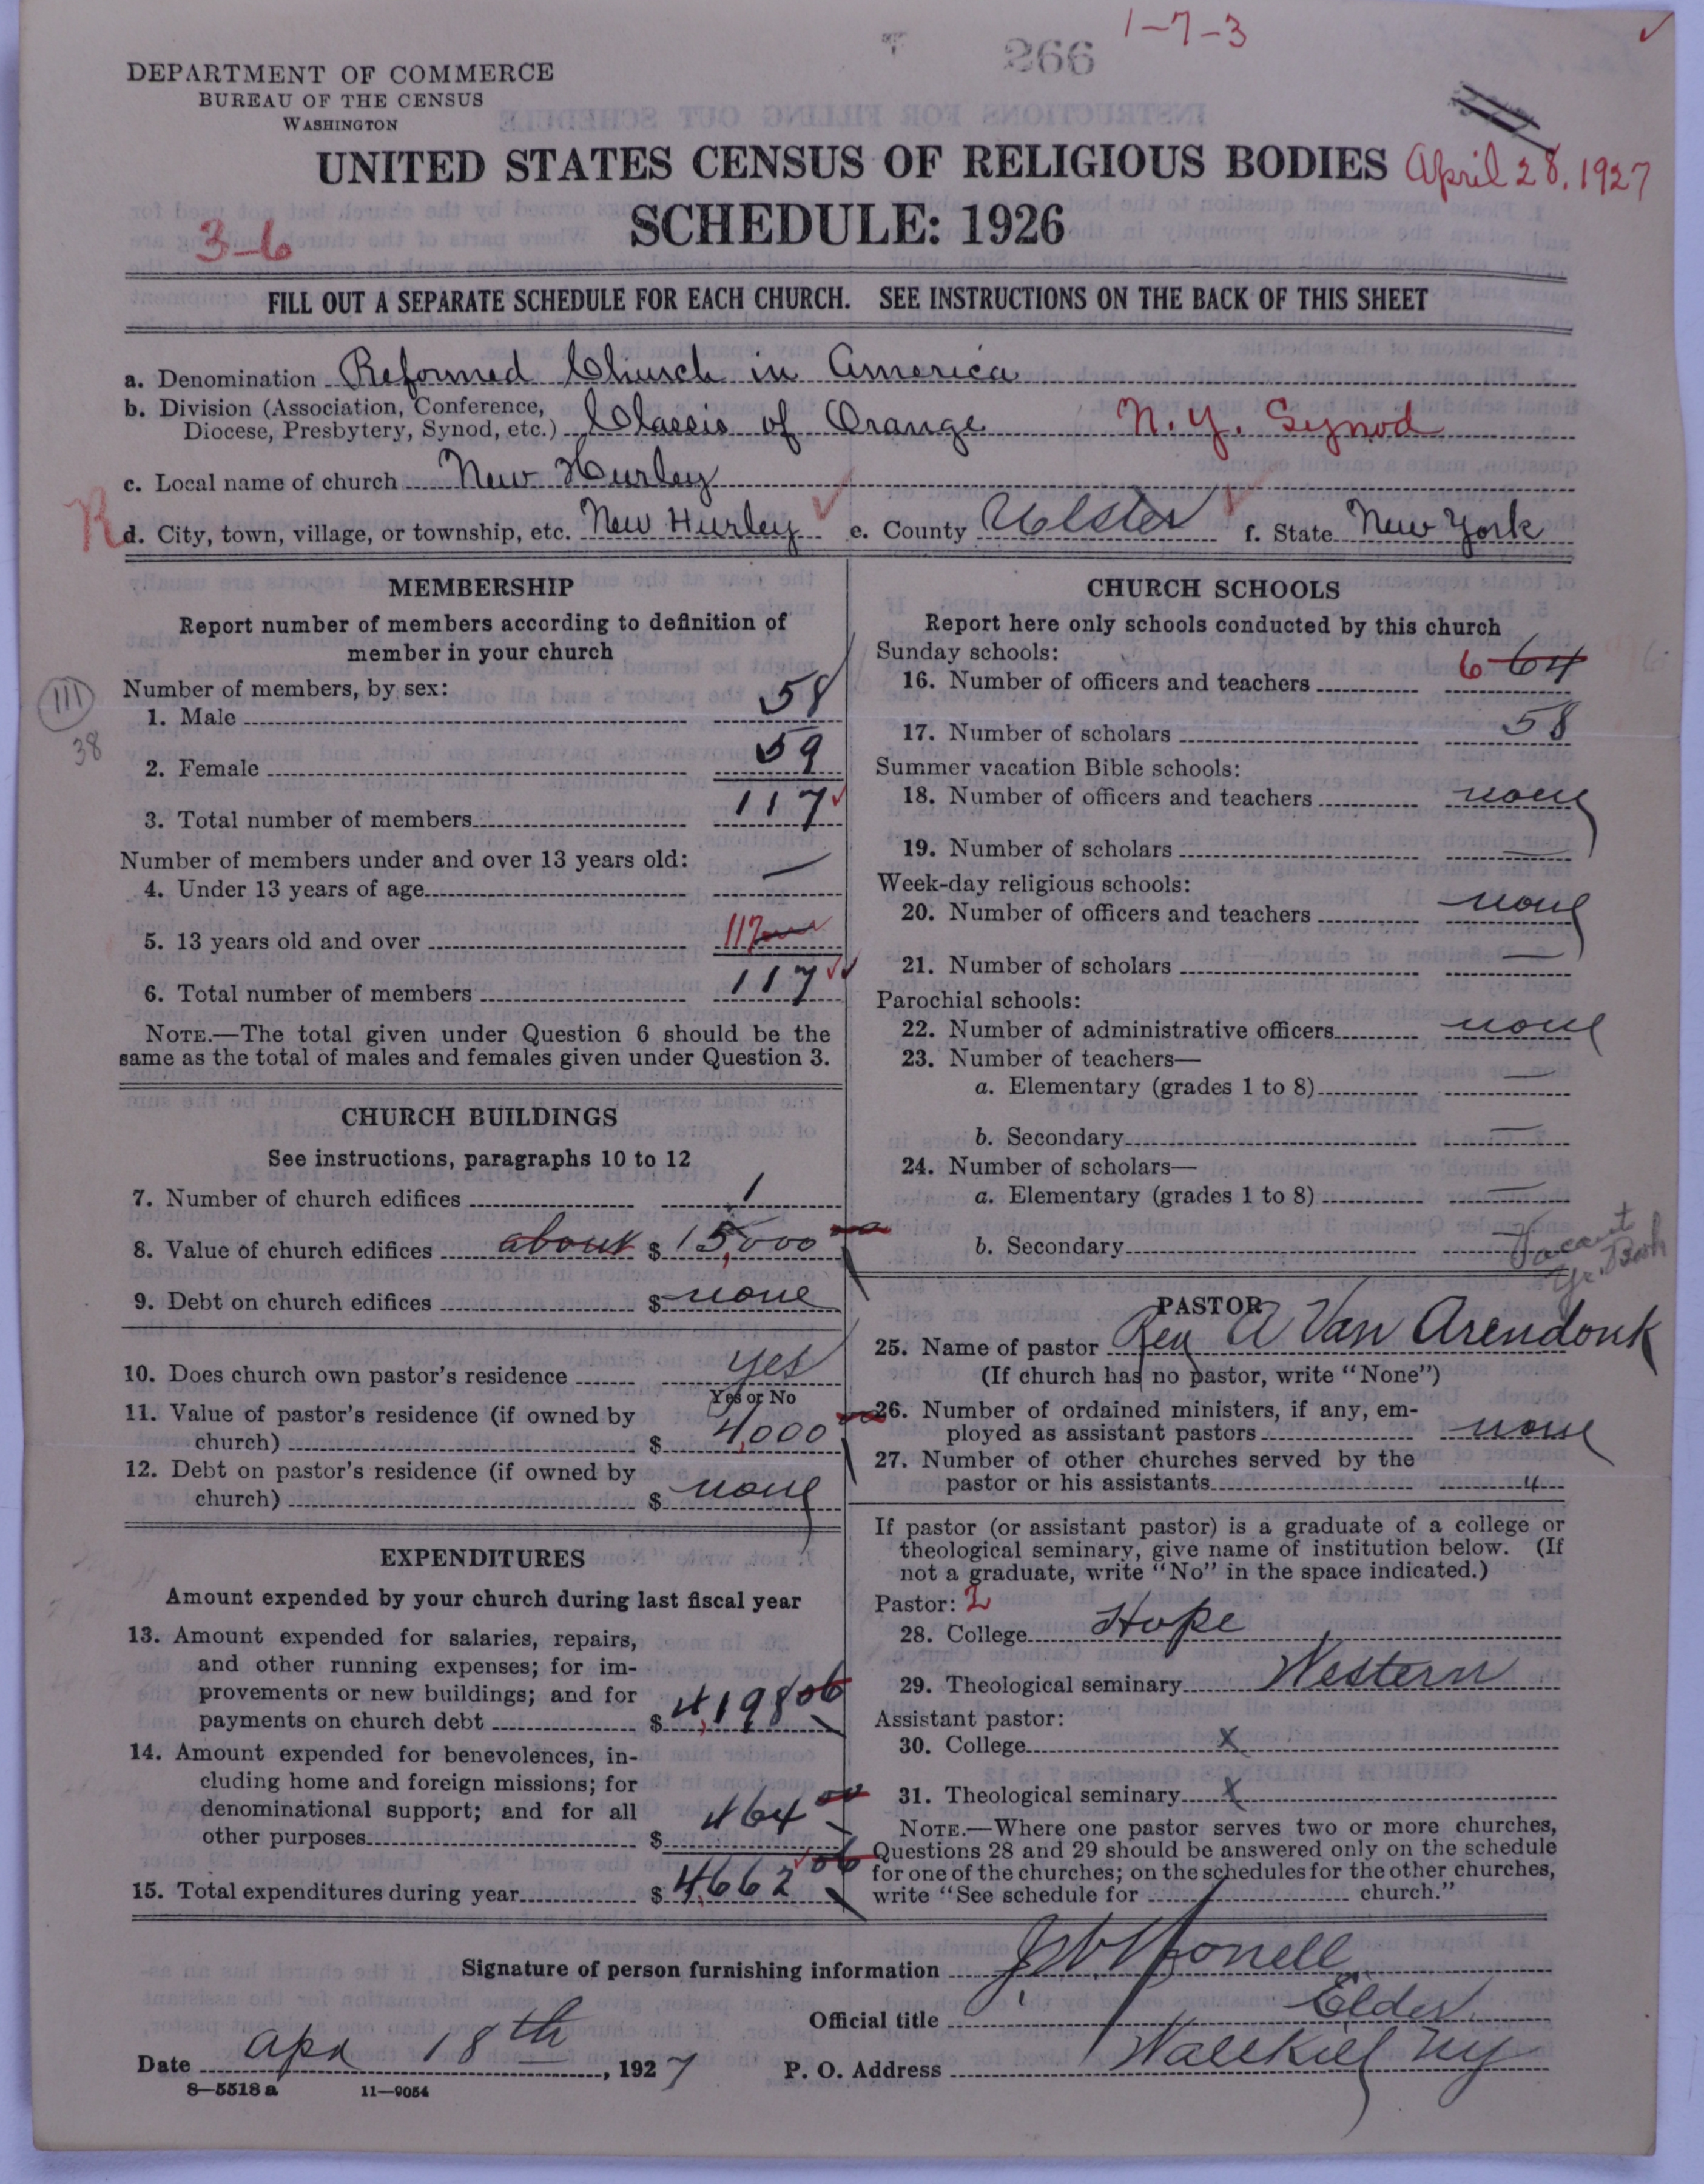 1-7-3
266
DEPARTMENT OF COMMERCE
BUREAU OF THE CENSUS
WASHINGTON
UNITED STATES CENSUS OF RELIGIOUS BODIES April 28, 1927
SCHEDULE: 1926
3-6
FILL OUT A SEPARATE SCHEDULE FOR EACH CHURCH. SEE INSTRUCTIONS ON THE BACK OF THIS SHEET
a. Denomination Reformed Church in America
b. Division (Association, Conference,
Diocese, Presbytery, Synod, etc.) Classis of Orange N.Y. Synod
c. Local name of church New Hurley
R d. City, town, village, or township, etc. New Hurley e. County Ulster f. State New York
MEMBERSHIP
Report number of members according to definition of
member in your church
Number of members, by sex:
111
38
1. Male 58
2. Female 59
3. Total number of members 117
Number of members under and over 13 years old:
4. Under 13 years of age —
5. 13 years old and over 117
6. Total number of members 117
NOTE.—The total given under Question 6 should be the
same as the total of males and females given under Question 3.
CHURCH BUILDINGS
See instructions, paragraphs 10 to 12
7. Number of church edifices 1
8. Value of church edifices about $ 15,000
9. Debt on church edifices $ none
10. Does church own pastor's residence yes
Yes or No
11. Value of pastor's residence (if owned by
church) $ 4,000
12. Debt on pastor's residence (if owned by
church) $ none
EXPENDITURES
Amount expended by your church during last fiscal year
13. Amount expended for salaries, repairs,
and other running expenses; for im-
provements or new buildings; and for
payments on church debt $ 4,198 06
14. Amount expended for benevolences, in-
cluding home and foreign missions; for
denominational support; and for all
other purposes $ 464 00
15. Total expenditures during year $ 4,662 06
CHURCH SCHOOLS
Report here only schools conducted by this church
Sunday schools:
16. Number of officers and teachers 6 64
17. Number of scholars 58
Summer vacation Bible schools:
18. Number of officers and teachers none
19. Number of scholars —
Week-day religious schools:
20. Number of officers and teachers none
21. Number of scholars —
Parochial schools:
22. Number of administrative officers none
23. Number of teachers—
a. Elementary (grades 1 to 8) —
b. Secondary —
24. Number of scholars—
a. Elementary (grades 1 to 8) —
b. Secondary —
Vacant
Yr. Book
PASTOR
25. Name of pastor Rev A Van Arendonk
(If church has no pastor, write "None")
26. Number of ordained ministers, if any, em-
ployed as assistant pastors none
27. Number of other churches served by the
pastor or his assistants 4
If pastor (or assistant pastor) is a graduate of a college or
theological seminary, give name of institution below. (If
not a graduate, write "No" in the space indicated.)
Pastor: 2
28. College Hope
29. Theological seminary Western
Assistant pastor:
30. College X
31. Theological seminary X
NOTE.—Where one pastor serves two or more churches,
Questions 28 and 29 should be answered only on the schedule
for one of the churches; on the schedules for the other churches,
write "See schedule for church."
Signature of person furnishing information
Official title Elder
Date Apr 18th, 1927 P. O. Address Wallkill NY
8—5518 a 11—9054